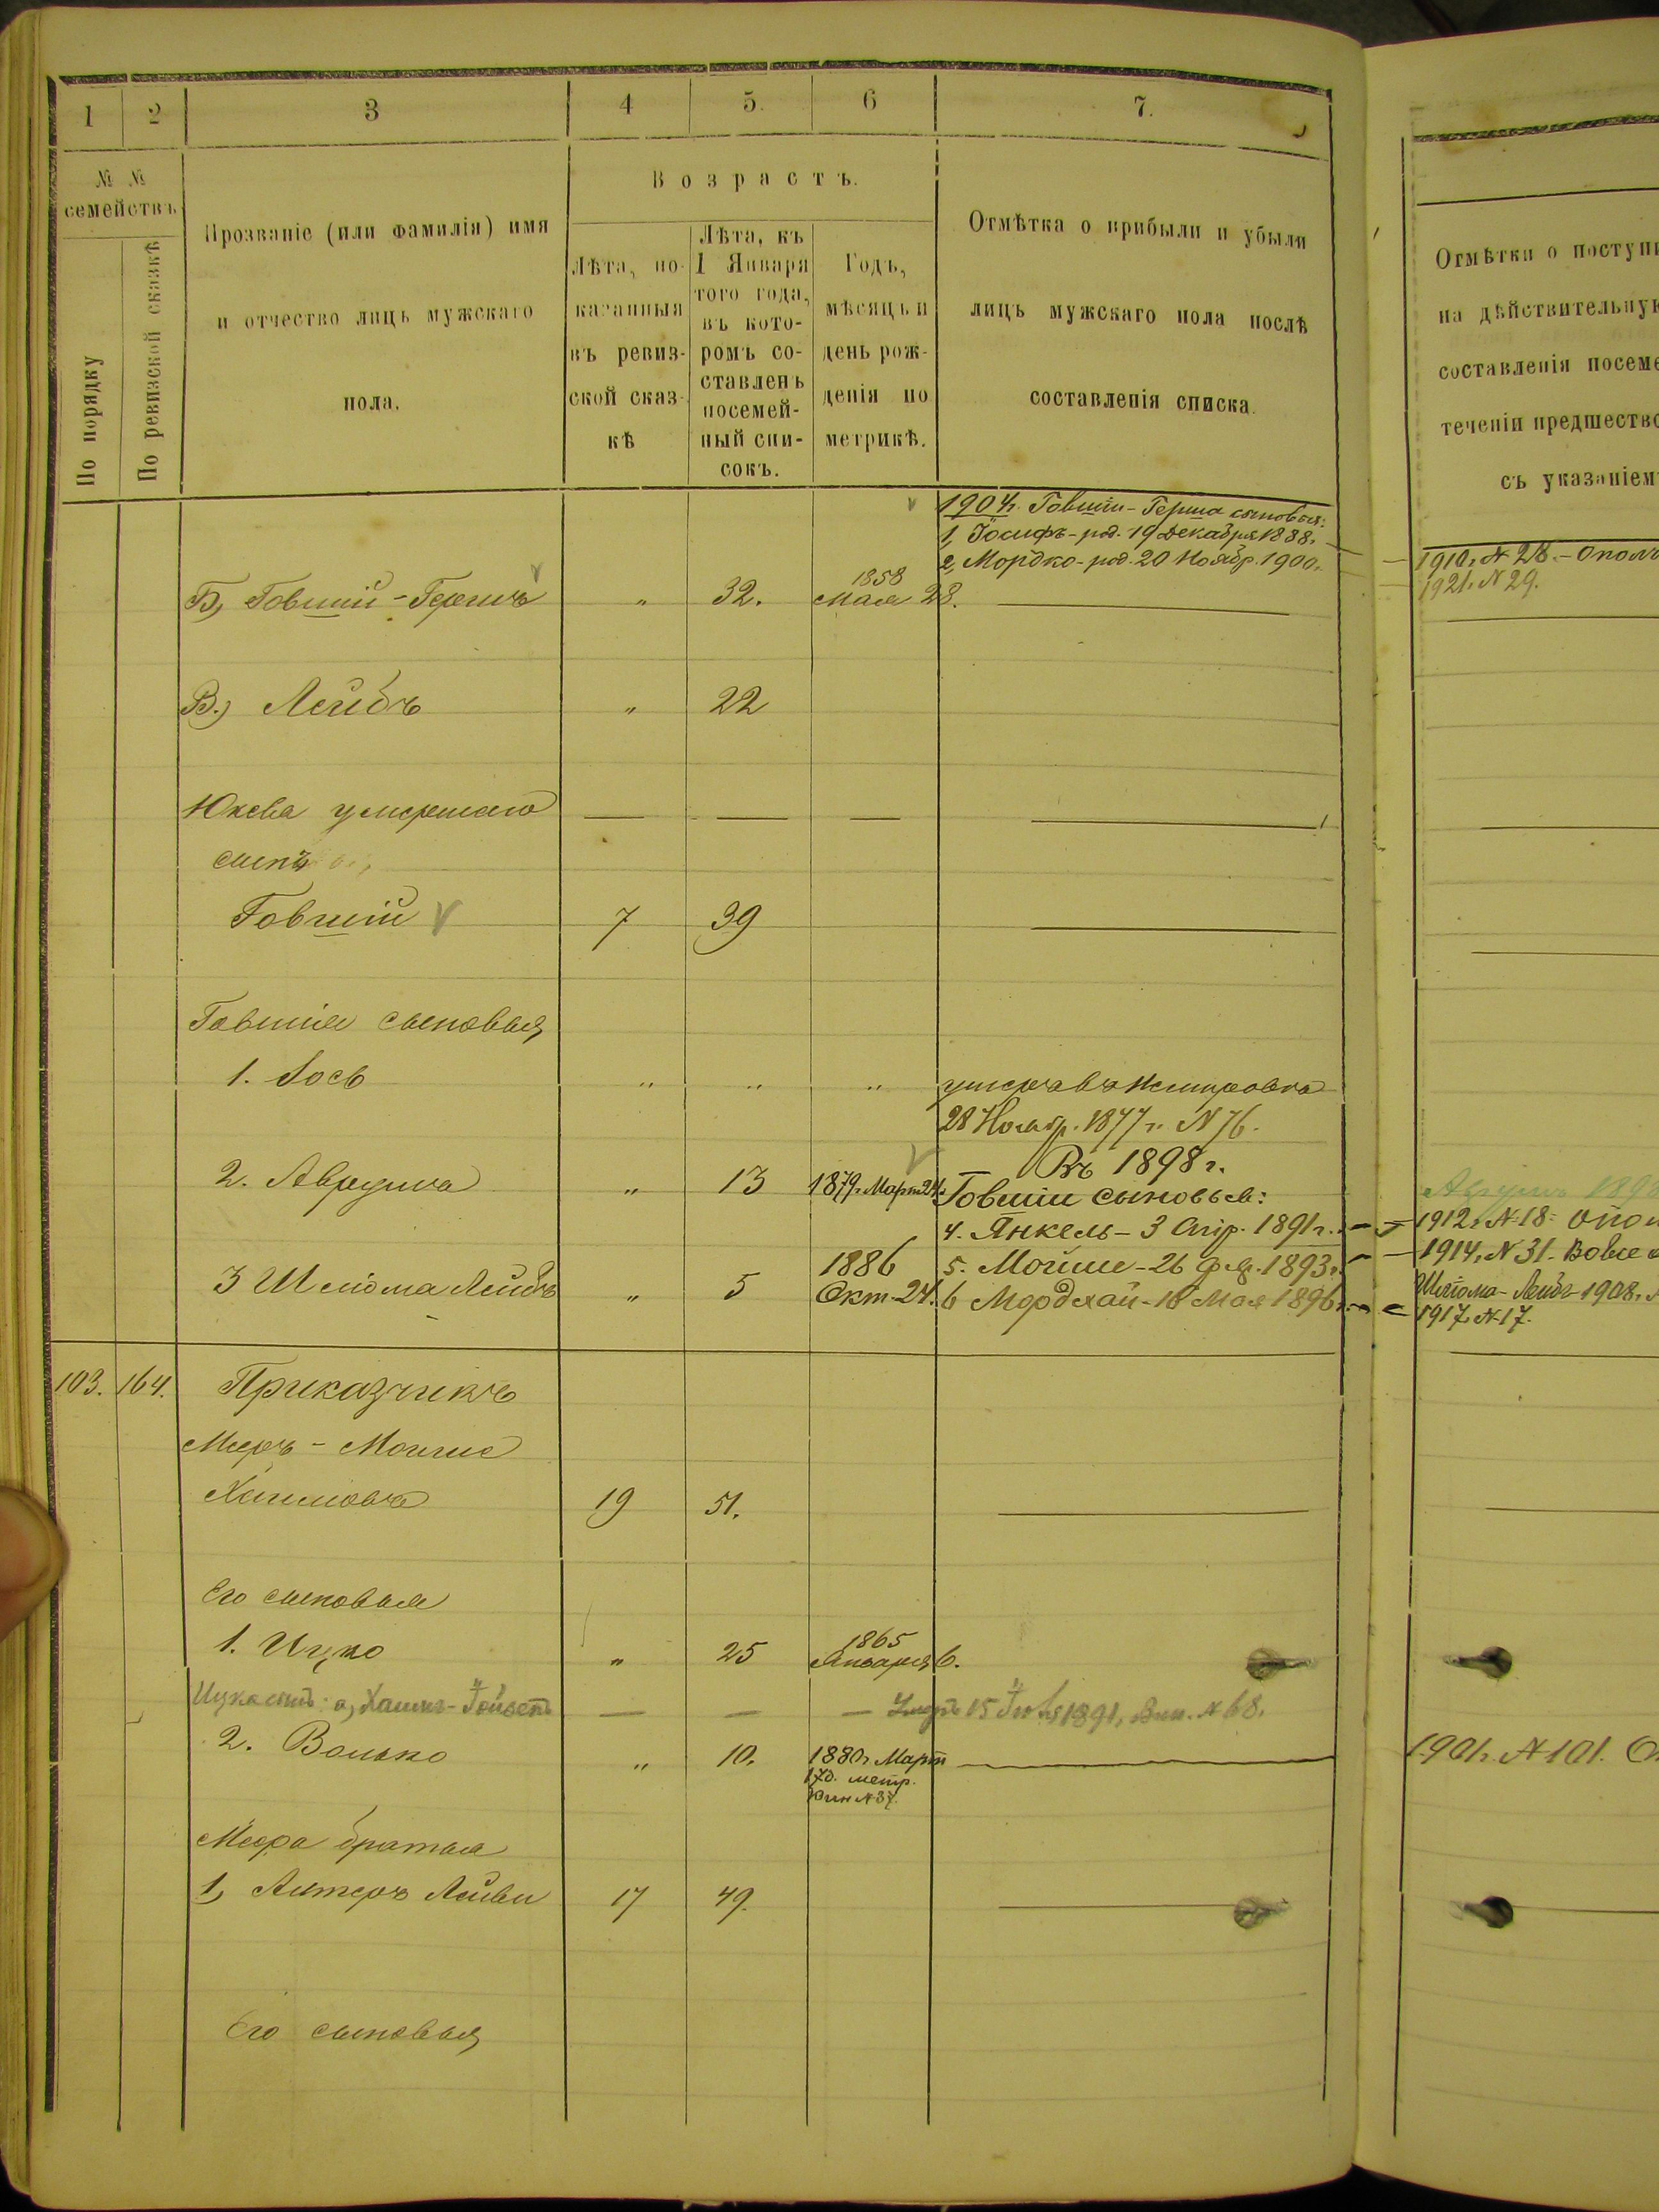 1 2 3 4 5. 6 7.
№ № семействъ
По порядку
По ревизской сказкѣ
Прозваніе (или фамилія) имя
и отчество лицъ мужскаго
пола.
Возрастъ.
Лѣта, по-
казанныя
въ ревиз-
ской сказ-
кѣ
Лѣта, къ
1 Января
того года,
въ кото-
ромъ со-
ставленъ
посемей-
ный спи-
сокъ.
Годъ,
мѣсяцъ и
день рож-
денія по
метрикѣ.
Отмѣтка о прибыли и убыли
лицъ мужскаго пола послѣ
составленія списка.
1904г. Говшіи-Герша сыновья:
1, Іосифъ-род. 19 Декабря 1888.
2, Мордко-род. 20 Ноябр. 1900.
Б, Говшій-Гершъ " 32. 1858 Мая 28.
В.) Лейбъ " 22
Юкева умершаго
сынъ
Говшій 7 39
Говшія сыновья
1. Іось " " " умеръ въ Немировѣ
28 Ноябр. 1877 г. N 76.
Въ 1898 г.
2. Аврума " 13 1879г. Март 24. Говшіи сыновья:
4. Янкель-3 Апр. 1891г.
3 Шлиома Лейбъ " 5 1886 Окт-24. 5. Мойше-26 фев. 1893г.
6 Мордхай-18 Мая 1896г.
103. 164. Приказчикъ
Мееръ-Мошко
Хаимовъ 19 51.
Его сыновья
1. Ицко " 25 1865 Января 6.
Ицка сынъ: а, Хаимъ- Умеръ 15 1891, Вин. № 68.
2. Волько " 10. 1880г Март
17д. метр.
Вин N 37.
Меера братья
1, Алтеръ Лейви 17 49.
Его сыновья
Отмѣтки о поступ
на дѣйствительную
составленія посеме
теченіи предшество
съ указаніем
1910г. № 28.-Опол
1921г. N 29.
1912г. № 18- опол
1914г. N 31-
Шліома-Лейб-1908г.
1917г. № 17.
1901г. № 101.